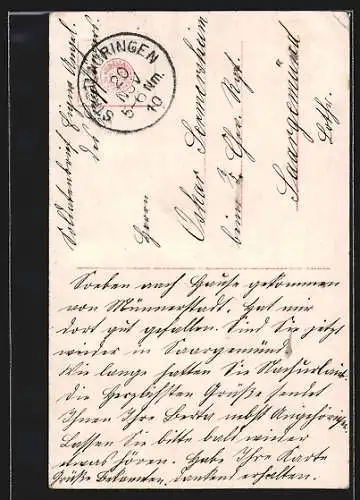 Soldatenbrief. Eigene Angel.
des Empfängers.
SAARGEMÜND (LOTHRINGEN)
20
NOV
5-6 Nm.
10
Herrn
Oskar
beim
Saargemünd
Lothr.
Soeben nach Hause gekommen
von Münnerstadt. Hat mir
dort gut gefallen. Sind Sie jetzt
wieder in Saargemünd.
Wie lange hatten Sie Nachurlaub.
Die Herzlichsten Grüße sendet
Ihnen Ihre Berta nebst Angehörigen.
Lassen Sie bitte bald wieder
etwas hören. Habe Ihre Karte
Grüße Bekannten. dankend erhalten.